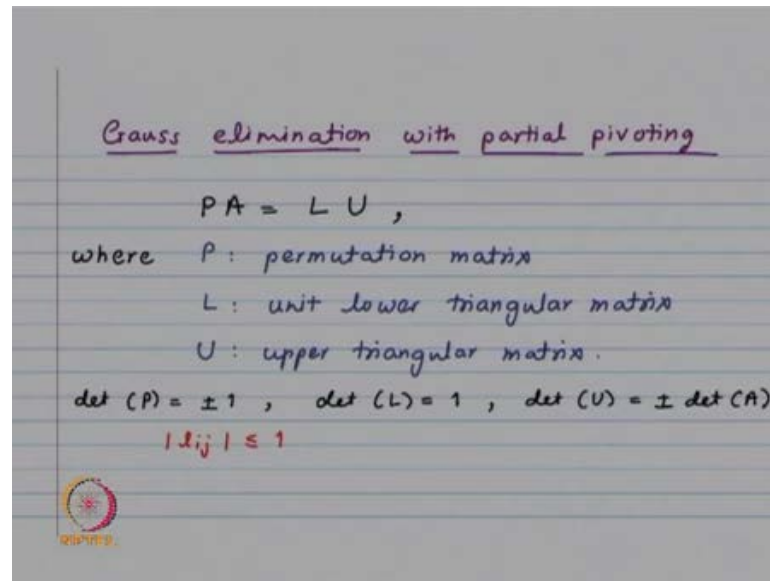 Gauss elimination with partial pivoting
PA = LU,
where P: permutation matrix
L: unit lower triangular matrix
U: upper triangular matrix.
det (P) = ± 1, det (L) = 1, det (U) = ± det (A)
|lij| ≤ 1